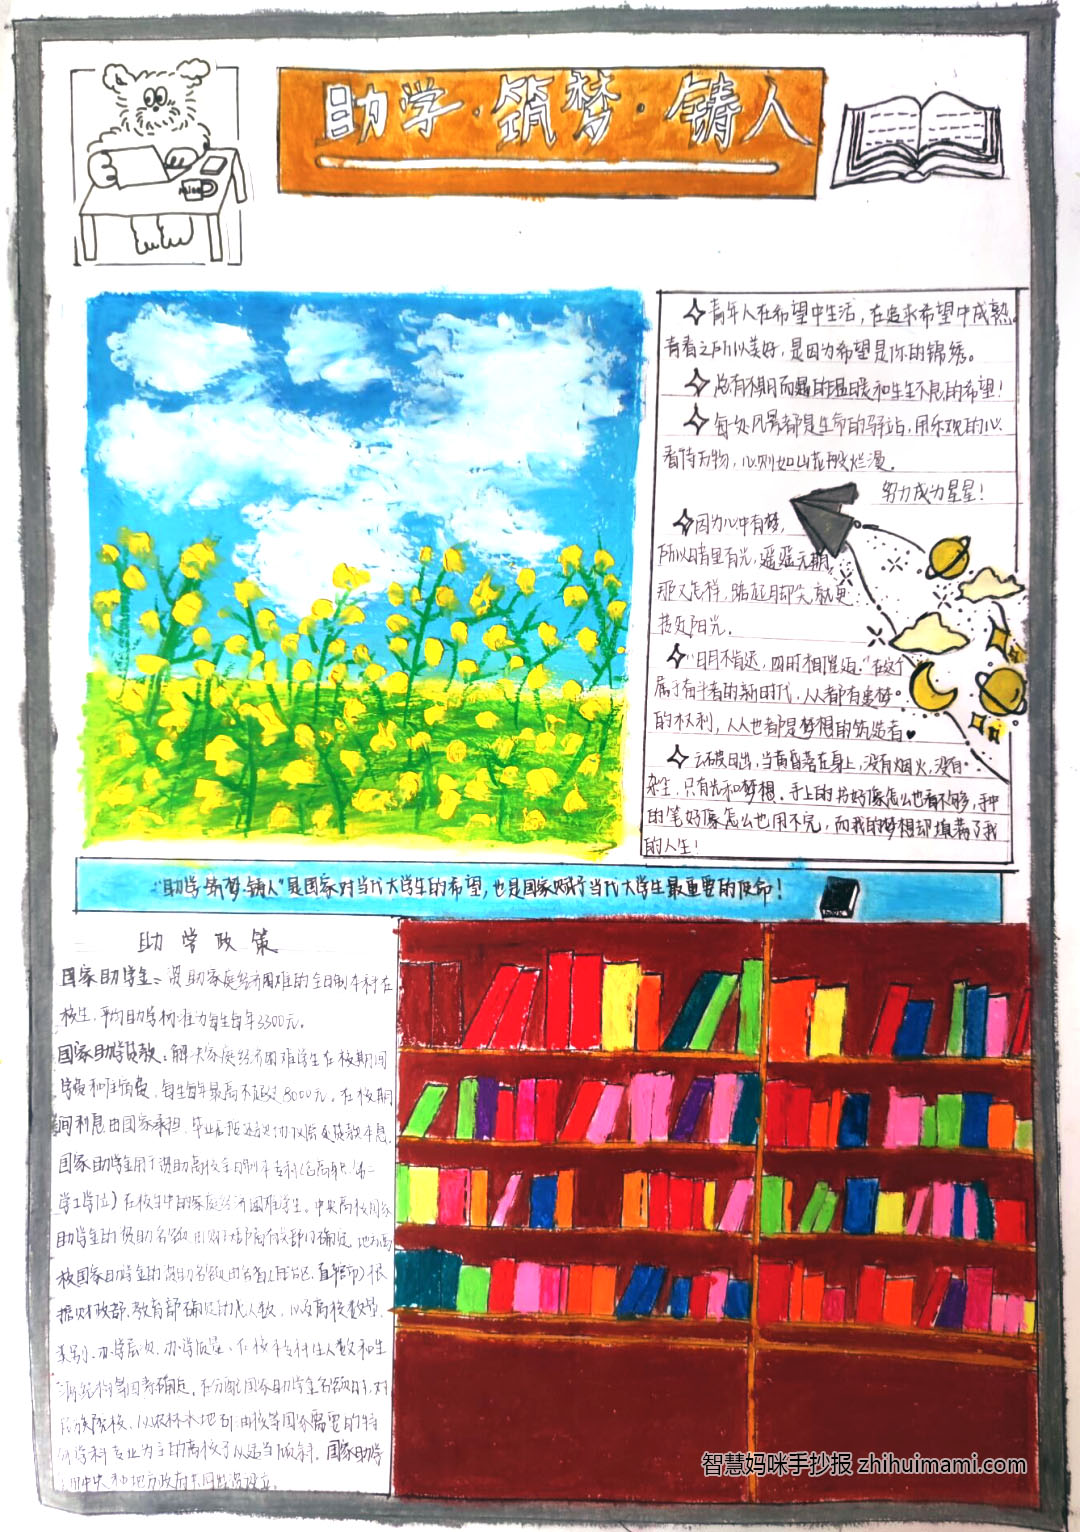 助学·筑梦·铸人
青年人在希望中生活，在追求希望中成熟。
青春之所以美好，是因为希望是你的锦绣。
总有不期而遇的温暖和生生不息的希望！
每处风景都是生命的驿站，用乐观的心
看待万物，心则如山花般烂漫。
努力成为星星！
因为心中有梦，
所以暗里有光，遥遥无期，
那又怎样，踮起脚尖就更
靠近阳光。
"日月不肯迟，四时相催迫."在这个
属于奋斗者的新时代，人人都有追梦
的权利，人人也都是梦想的筑造者
云破日出，当黄昏落在身上，没有烟火，没有
杂尘，只有光和梦想。手上的书好像怎么也看不够，手中
的笔好像怎么也用不完，而我的梦想却填满了我
的人生！
"助学·筑梦·铸人"是国家对当代大学生的希望，也是国家赋予当代大学生最重要的使命！
助学政策
国家助学金：资助家庭经济困难的全日制本科在
校生，平均助学标准为每生每年3300元。
国家助学贷款：解决家庭经济困难学生在校期间
学费和住宿费，每生每年最高不超过8000元，在校期
间利息由国家承担，毕业后
国家助学金用于资助高校全日制本专科(含高职、第二
学士学位)在校生中的家庭经济困难学生。中央高校国家
助学金的资助名额由财政部商有关部门确定。地方高
校国家助学金的资助名额由各省(自治区、直辖市)根
据财政部、教育部确定的总人数，以及高校数量、
类别、办学层次、办学质量、在校本专科生人数和生
源结构等因素确定。在分配国家助学金名额时，对
民族院校、以农林水地矿油核等国家需要的特
殊学科专业为主的高校予以适当倾斜。国家助学
金由中央和地方政府共同出资设立。
智慧妈咪手抄报 zhihuimami.com